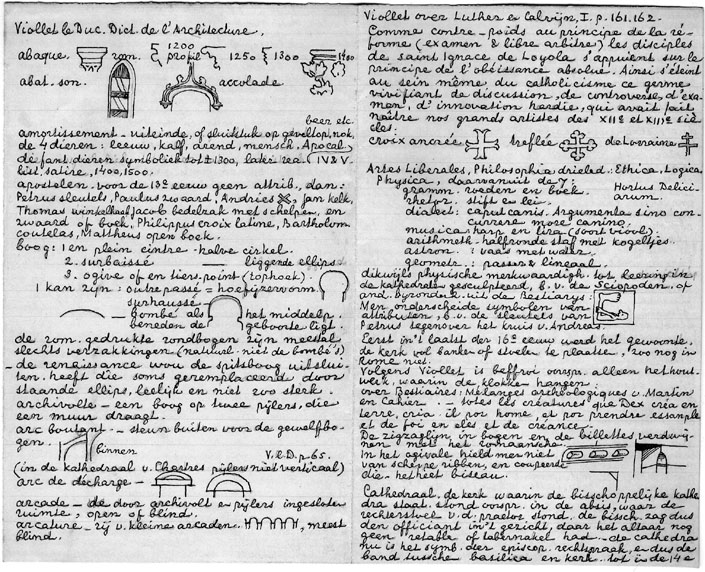 Viollet le Duc. Dict. de l'Architecture.
abaque. rom. 1200 profil 1250 1300 1400
abat-son. accolade
beer etc.
amortissement - uiteinde, of sluitstuk op geveltop, nok,
de 4 dieren: leeuw, kalf, arend, mensch, Apocal,
de fant. dieren symboliek tot ± 1300, later rea- (IV & V-
list, satire, 1400, 1500.
apostelen - voor de 13e eeuw geen attrib., dan:
Petrus sleutels, Paulus zwaard, Andries X, Jan kelk,
Thomas winkelhaak Jacob bedelzak met schelpen, en
zwaard of boek, Philippus croix latine, Bartholom.
coutelas, Mattheus open boek.
boog: 1 en plein cintre - halve cirkel.
2. surbaissé liggende ellips.
3. ogive of en tiers-point (tophoek).
1 kan zijn: outrepassé = hoefijzervorm
surhaussé
bombé als het middelp.
beneden de geboorte ligt.
de rom. gedrukte rondbogen zijn meestal
slechts verzakkingen (natuurl. niet de bombé's)
- de renaissance wou de spitsboog uitslui-
ten. heeft die soms geremplaceerd door
staande ellips, leelijk en niet zoo sterk.
archivolte - een boog op twee pijlers, die
een muur draagt.
arc boutant - steun buiten voor de gewelfbo-
gen. binnen V.l.D. p. 65.
(in de kathedraal v. Chartres pijlers niet verticaal)
arc de décharge -
arcade - de door archivolt e pijlers ingesloten
ruimte, open of blind.
arcature - rij v. kleine arcaden. , meest
blind.
Viollet over Luther & Calvijn, I. p. 161. 162.
Comme contre-poids au principe de la ré-
forme (examen & libre arbitre) les disciples
de saint Ignace de Loyola s'appuient sur le
principe de l'obéissance absolue. Ainsi s'éteint
au sein même du catholicisme ce germe
vivifiant de discussion, de controverse, d'exa-
men, d'innovation hardie, qui avait fait
naître nos grands artistes des XIIe et XIIIe siè-
cles.
croix ancrée, treflée, de Lorraine
Artes Liberales, Philosophia drieled.: Ethica, Logica
Physica, daarvanuit de 7:
gramm. roeden en boek. Hortus Delici-
rhetor. stift e lei. arum.
dialect: caput canis. Argumenta sino con-
currere more canino.
musica: harp en lira (soort viool).
arithmeth. halfronde staf met kogeltjes
astron. : vaas met water.
geometr. : passer & liniaal.
dikwijls physische merkwaardigh. tot leering in
de kathedralen gesculpteerd, b.v. de Sciopoden, of
and. byzonderh. uit de Bestiarys:
Men onderscheide symbolen van
attributen, b.v. de sleutels van
Petrus tegenover het kruis v. Andreas.
Eerst in 't laatst der 16e eeuw werd het gewoonte,
de kerk vol banken of stoelen te plaatsen, zoo nog in
Rome niet.
Volgens Viollet is beffroi oorspr. alleen het hout-
werk, waarin de klokken hangen.
over Bestiaires: Mélanges archéologiques v. Martin
en Cahier. - totes les créatures que Dex cria en
terre, cria il por home, et por prendre essample
et de foi en eles et de creance.
De zigzaglijn in bogen en de billettes verdwij-
nen met het romaansche.
In het ogivale hield men niet
van scherpe ribben, en coupeerde
die. - het heet biseau.
Cathedraal. de kerk waarin de bisschoppelijke kathe
dra staat. stond oorspr. in de absis, waar de
rechterstoel v.d. praetor stond. de bissch. zag dus
den officiant in 't gezicht, daar het altaar nog
geen retable of tabernakel had. - de cathedra
nu is het symb. der episcop. rechtspraak, e dus de
band tussche basilica en kerk. tot in de 14e